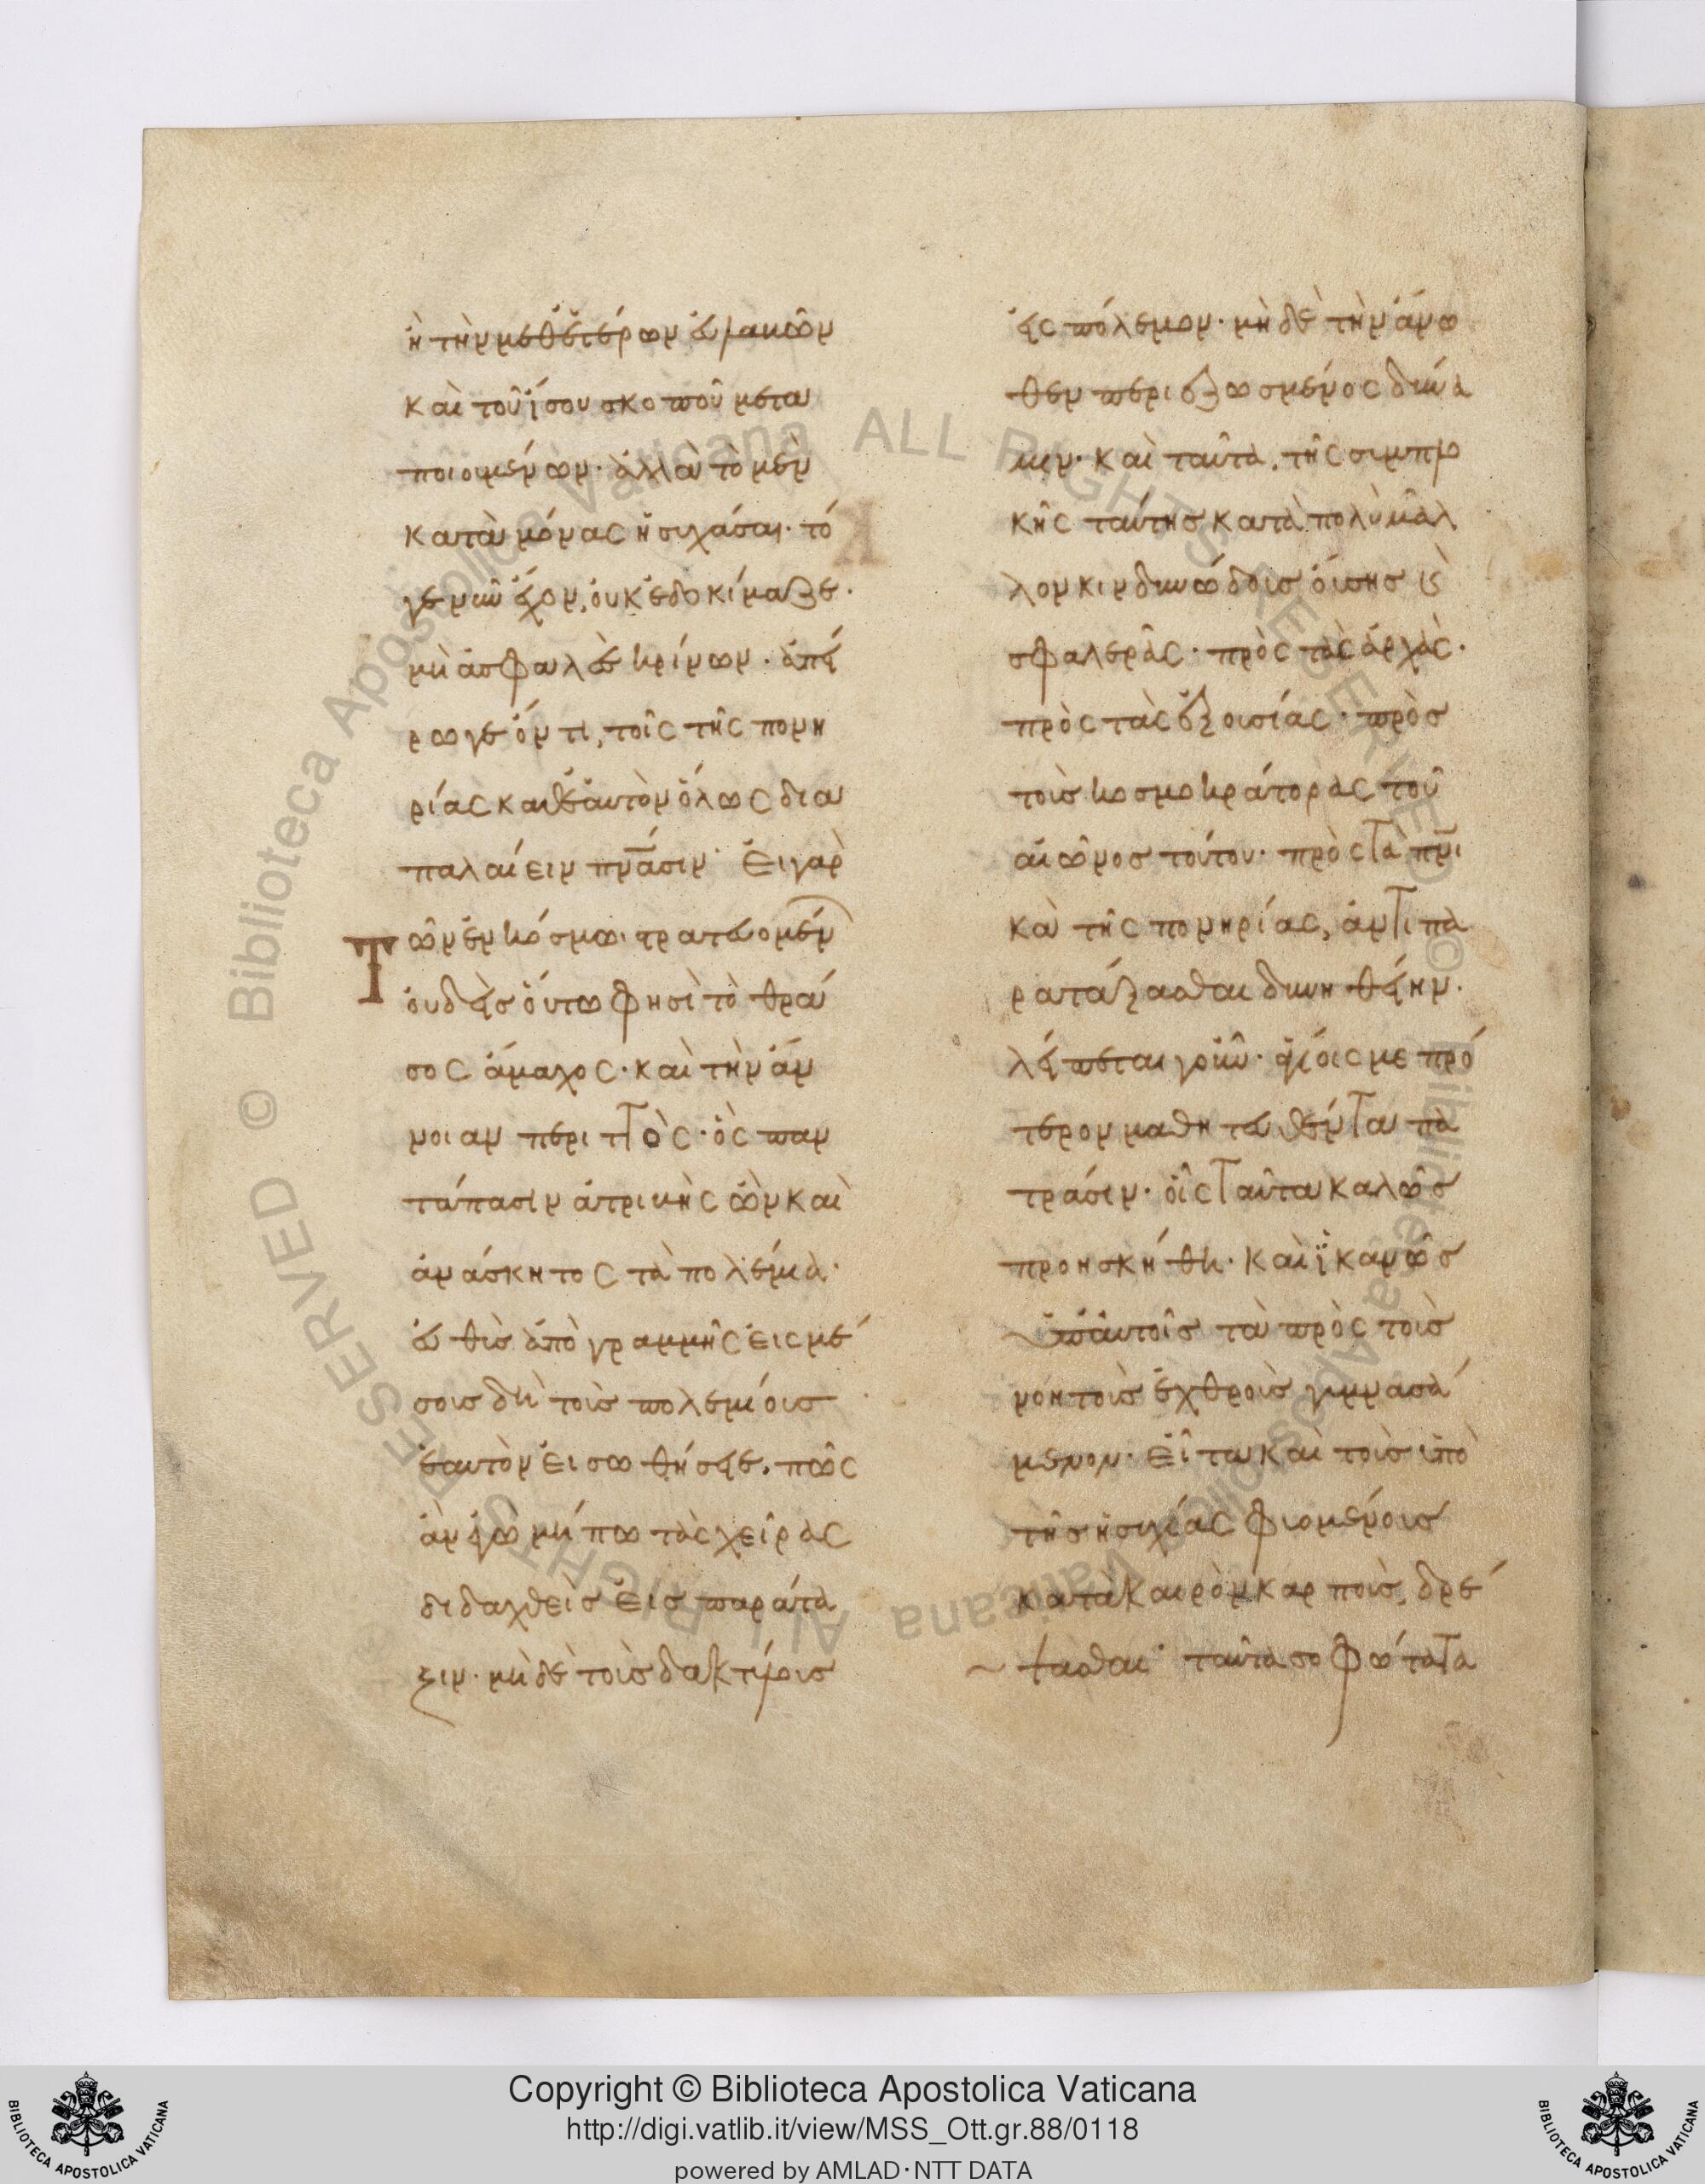 ἢ τὴν μεθ' ἑτέρων ὁμιακῶν
καὶ τοῦ ἴσου σκοποῦ μετα
ποιουμένων· ἀλλὰ τὸ μὲν
κατὰ μόνας ἡσυχάσαι· τό
γε νῦν ἔχον, οὐκ ἐδοκίμαζε·
μὴ ἀσφαλὲς κρίνων· ἀπεί
ρω γε ὄντι, τοῖς τῆς πονη
ρίας καθ' ἑαυτὸν ὅλως δια
παλαίειν πνάσιν· Εἰ γὰρ
Τῶν ἐν κόσμω στρατευομέν
οὐδεὶς οὕτω φησὶ τὸ θρά
σος ἄμαχος· καὶ τὴν ἄν
νοιαν περιττὸς· ὃς παν
τάπασιν ἀτριβὴς ὢν καὶ
ἀνάσκητος τὰ πολέμια·
εὐθὺς ἀπὸ γραμμῆς εἰς μέ
σους δὴ τοὺς πολεμίους
ἑαυτὸν εἰσωθήσειε. πῶς
ἂν ἐγὼ μήπω τὰς χεῖρας
διδαχθεὶς εἰς παράτα
ξιν· μὴ δὲ τοὺς δακτύλους
εἰς πόλεμον· μὴ δὲ τὴν ἄνω
θεν περιεζωσμένος δύνα
μιν· καὶ ταῦτα, τῆς συμπλο
κῆς ταύτης κατὰ πολὺ μᾶλ
λον κινδυνώδους οὔσης καὶ
σφαλερᾶς· πρὸς τὰς ἀρχὰς·
πρὸς τὰς ἐξουσίας· πρὸς
τοὺς κοσμοκράτορας τοῦ
αἰῶνος τούτου· πρὸς τὰ πνι
κὰ τῆς πονηρίας, ἀντιπα
ρατάξασθαι δυνηθείην.
λείπεται γοῦν· ἐκείοις με πρό
τερον μαθητευθέντα πα
τράσιν· οἷς ταῦτα καλῶς
προησκήθη· καὶ ἱκανῶς
ὑπ' αὐτοῖς τὰ πρὸς τοὺς
νοητοὺς ἐχθροὺς γυμνασά
μενον· εἶτα καὶ τοὺς ἀπὸ
τῆς ἡσυχίας φυομένους
κατὰ καιρὸν καρποὺς, δρέ
ψασθαι· ταῦτα σοφώτατα
Copyright © Biblioteca Apostolica Vaticana
http://digi.vatlib.it/view/MSS_Ott.gr.88/0118
powered by AMLAD·NTT DATA